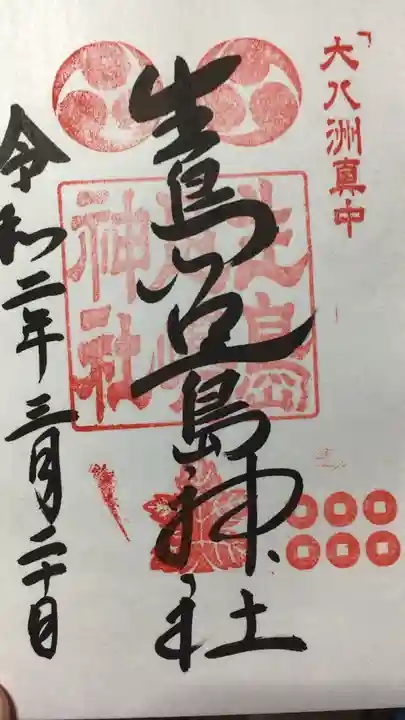 大八洲真中
生島足島神社
生島
神社
令和二年三月二十日